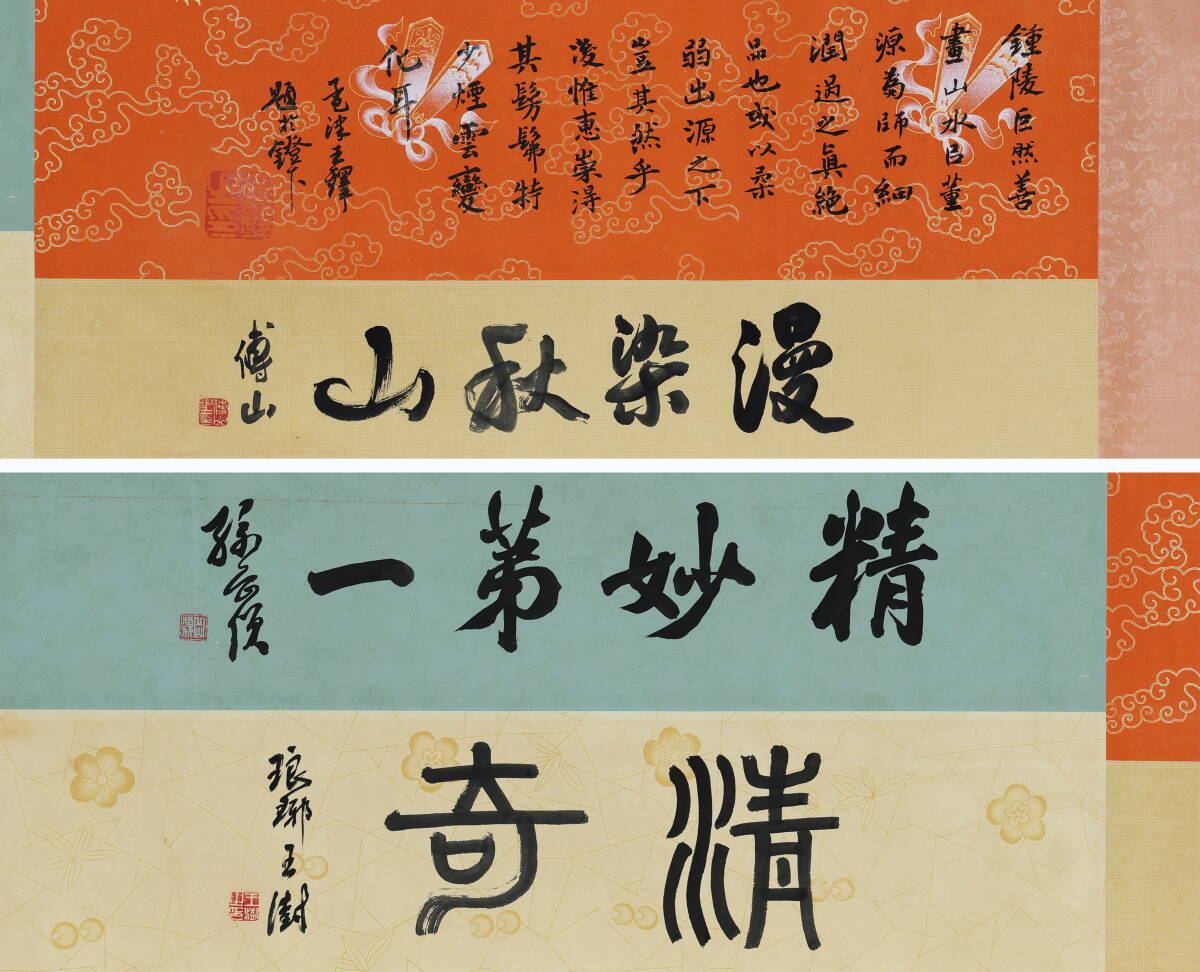 鍾陵巨然善
畫山水㠯董
源為師而細
潤過之眞絕
品也或以柔
弱出源之下
豈其然乎
後惟惠崇淂
其髣髴特
少煙雲變
化耳
孟津王鐸
題於鐙下
漫染秋山
傅山
精妙苐一
孫岳頒
清奇
琅琊王澍